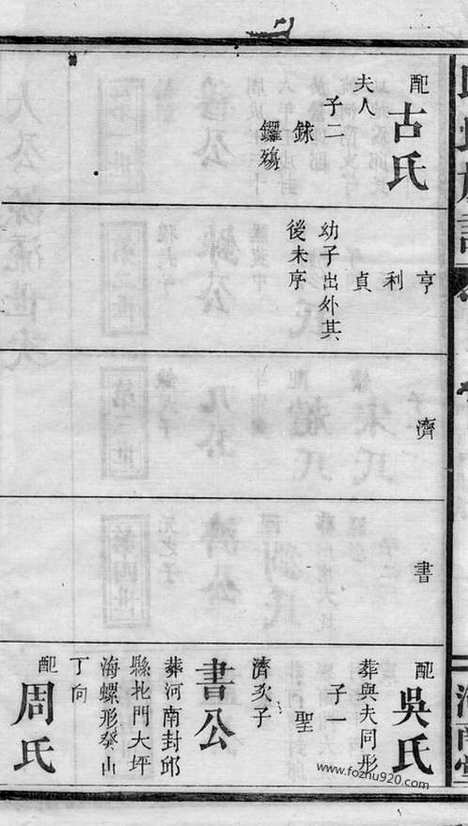 配
古氏
夫人
子二
銾
鑼殤
亨
利
貞
幼子出外其
後未序
濟
書
配
吳氏
葬與夫同形
子一
聖
濟次子
書公
葬河南封邱
縣北門大坪
海螺形癸山
丁向
配
周氏
www.fozhu920.com